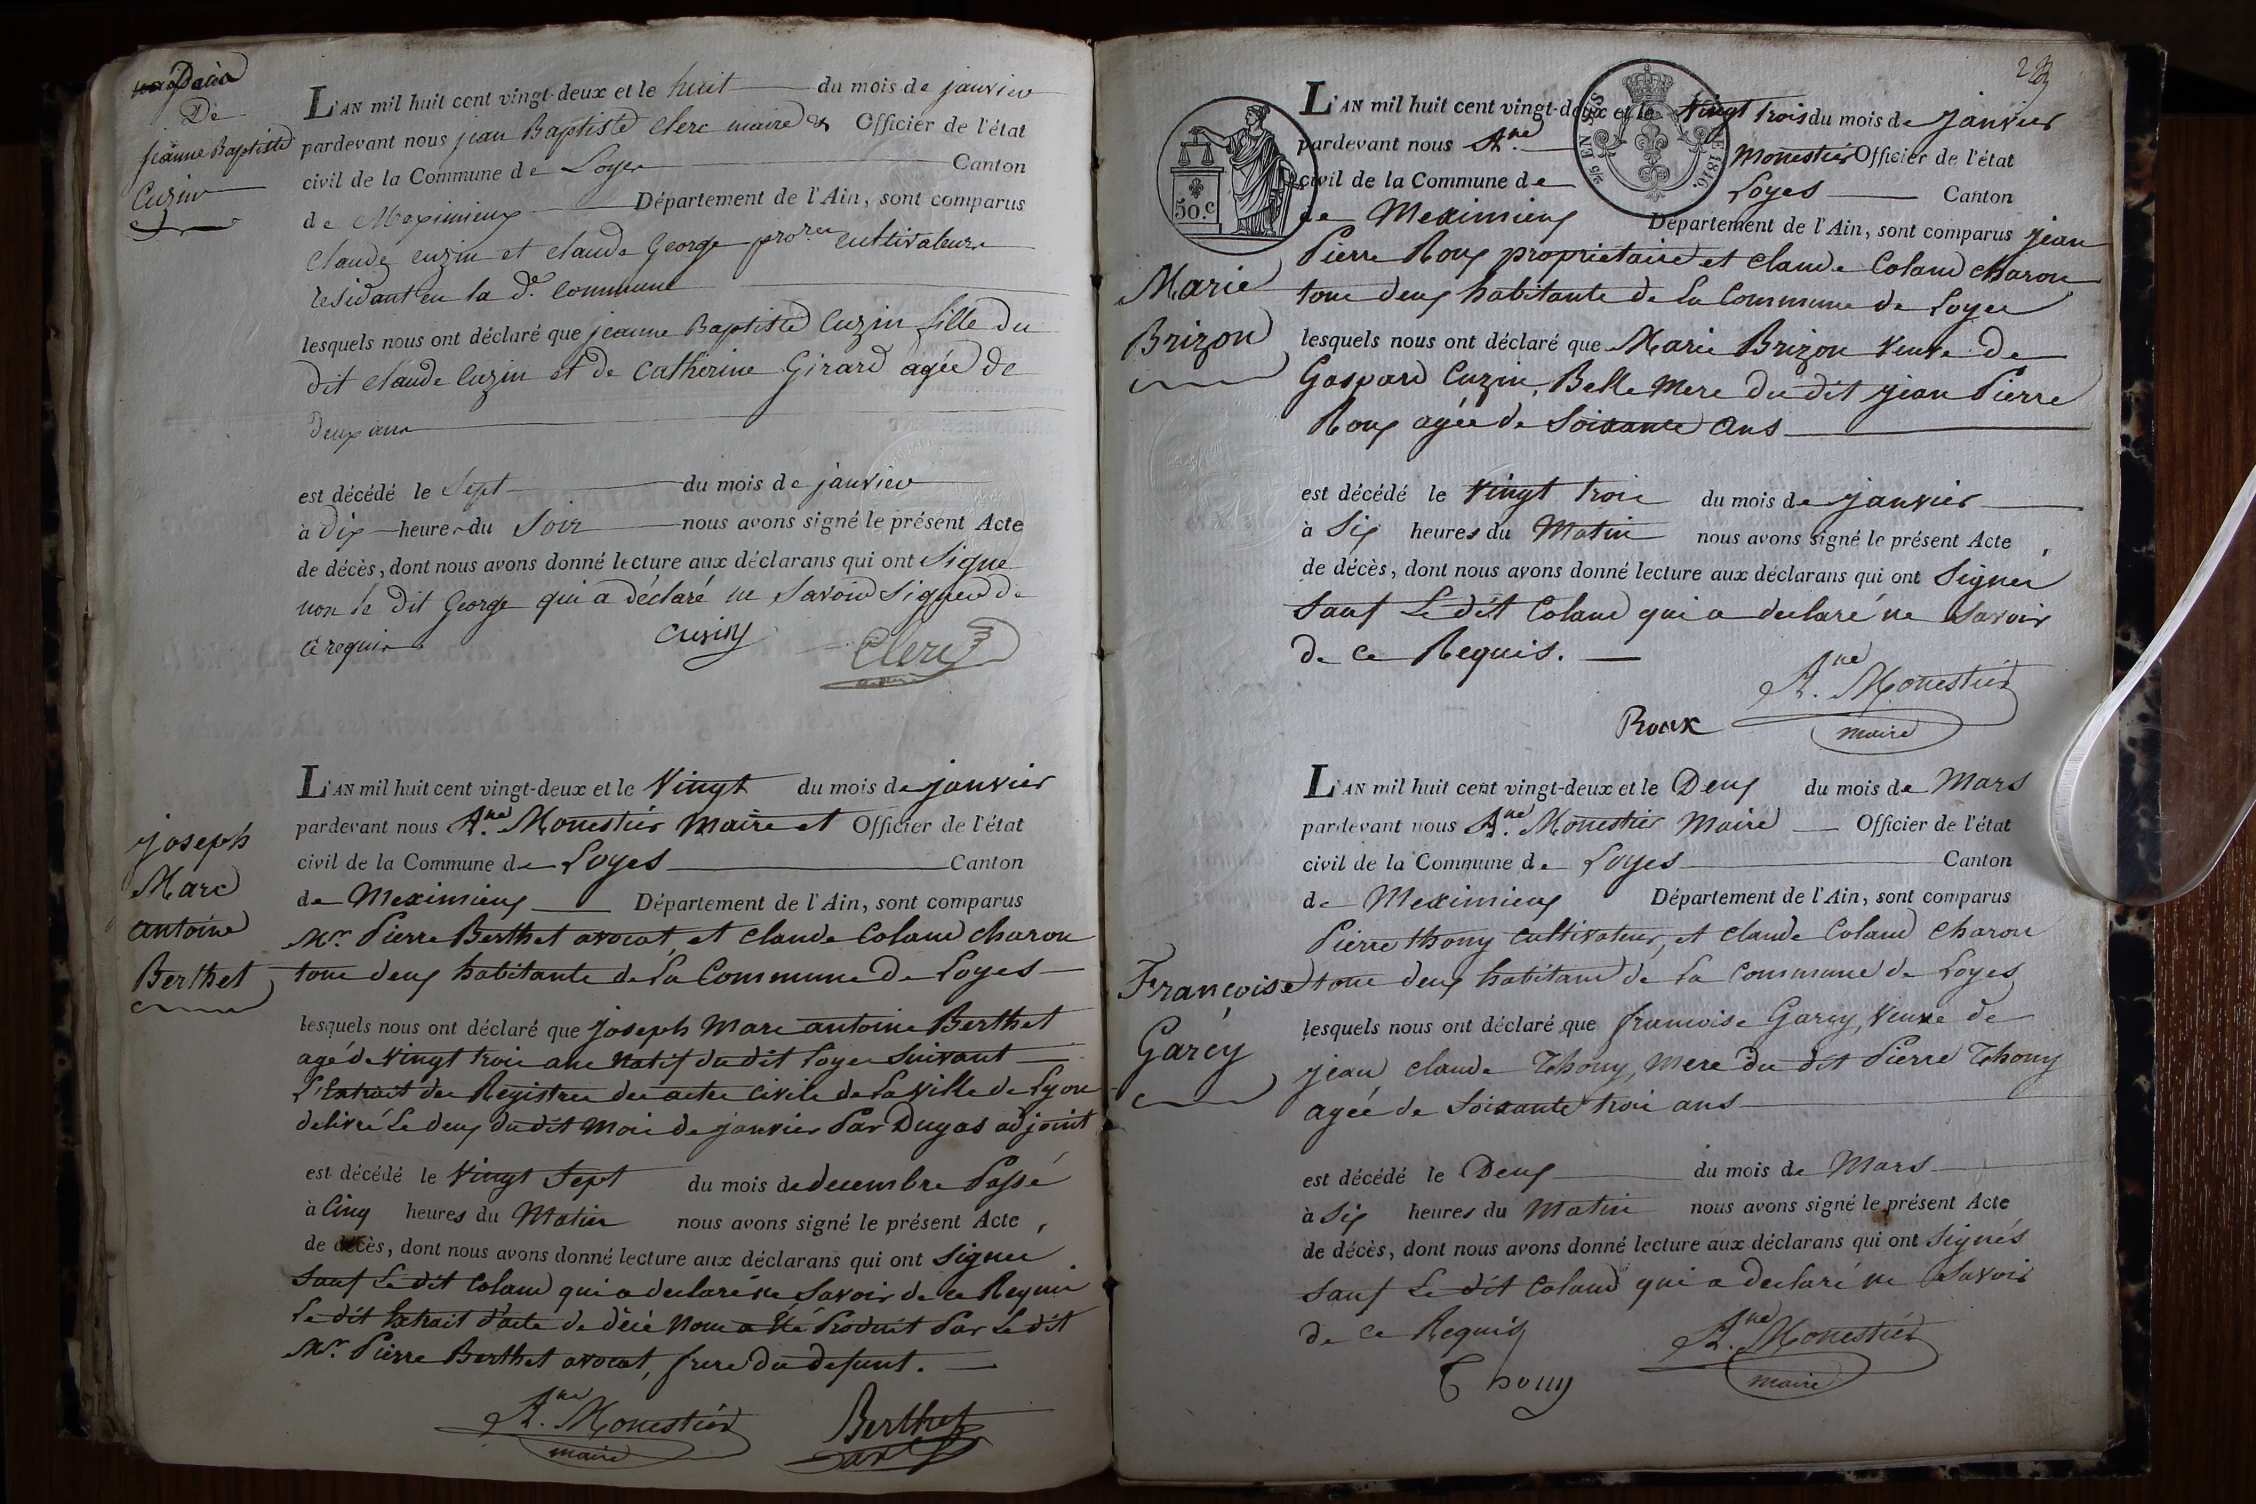 Décès
De
jeanne Baptiste
Cuzin
L'AN mil huit cent vingt-deux et le huit du mois de janvier
pardevant nous jean Baptiste clerc maire & Officier de l'état
civil de la Commune de Loyes Canton
de Meximieux Département de l'Ain, sont comparus
Claude cuzin et claude George cultivateurs
residant en la de. commune
lesquels nous ont déclaré que jeanne Baptiste Cuzin fille du
dit claude Cuzin et de Catherine Girard agée de
deux ans
est décédé le Sept du mois de janvier
à dix heures du Soir nous avons signé le présent Acte
de décès, dont nous avons donné lecture aux déclarans qui ont Signé
non le dit George qui a déclaré ne Savoir Signer de
ce requis
cuziny
Clerc
joseph
Marc
antoine
Berthet
L'AN mil huit cent vingt-deux et le Vingt du mois de janvier
pardevant nous A.ne Monestier Maire et Officier de l'état
civil de la Commune de Loyes Canton
de Meximieux Département de l'Ain, sont comparus
Mr. Pierre Berthet avocat, et Claude Coland charon
tous deux habitants de La Commune de Loyes
lesquels nous ont déclaré que joseph Marc antoine Berthet
agé de Vingt trois ans Natif du dit Loyes Suivant
L'Extrait des Registres des actes Civils de La Ville de Lyon
delivré Le deux du dit Mois de janvier Par Dugas adjoint
est décédé le Vingt Sept du mois de decembre Passé
à Cinq heures du Matin nous avons signé le présent Acte,
de décès, dont nous avons donné lecture aux déclarans qui ont Signer
Sauf Le dit Coland qui a declaré ne Savoir de ce Requis
Le dit Extrait d'acte de décè Nous a Été Produit Par Le dit
Mr. Pierre Berthet avocat, frere du defunt.
A.ne Monestier
maire
Berthet
2
Marie
Brizon
50.c
L'AN mil huit cent vingt-deux et le Vingt trois du mois de janvier
pardevant nous A.ne Monestier Officier de l'état
civil de la Commune de Loyes Canton
de Meximieux Département de l'Ain, sont comparus jean
Pierre Roux propriétaire et Claude Coland charon
tous deux habitants de La Commune de Loyes
lesquels nous ont déclaré que Marie Brizon Veuve de
Gaspard Cuzin, Belle Mere du dit jean Pierre
Roux agée de Soixante ans
est décédé le Vingt trois du mois de janvier
à Six heures du Matin nous avons signé le présent Acte,
de décès, dont nous avons donné lecture aux déclarans qui ont Signer
Sauf Le dit Coland qui a declaré ne Savoir
de ce Requis.
A.ne Monestier
maire
Roux
Françoise
Garcy
L'AN mil huit cent vingt-deux et le Deux du mois de Mars
pardevant nous A.ne Monestier Maire Officier de l'état
civil de la Commune de Loyes Canton
de Meximieux Département de l'Ain, sont comparus
Pierre thony Cultivateur, et Claude Coland charon
tous deux habitans de La Commune de Loyes
lesquels nous ont déclaré que francoise Garcy, Veuve de
jean claude Thony, Mere du dit Pierre Thony
agée de Soixante trois ans
est décédé le Deux du mois de Mars
à Six heures du Matin nous avons signé le présent Acte
de décès, dont nous avons donné lecture aux déclarans qui ont Signés
Sauf Le dit Coland qui a declaré ne Savoir
de ce Requis
A.ne Monestier
maire
Thony